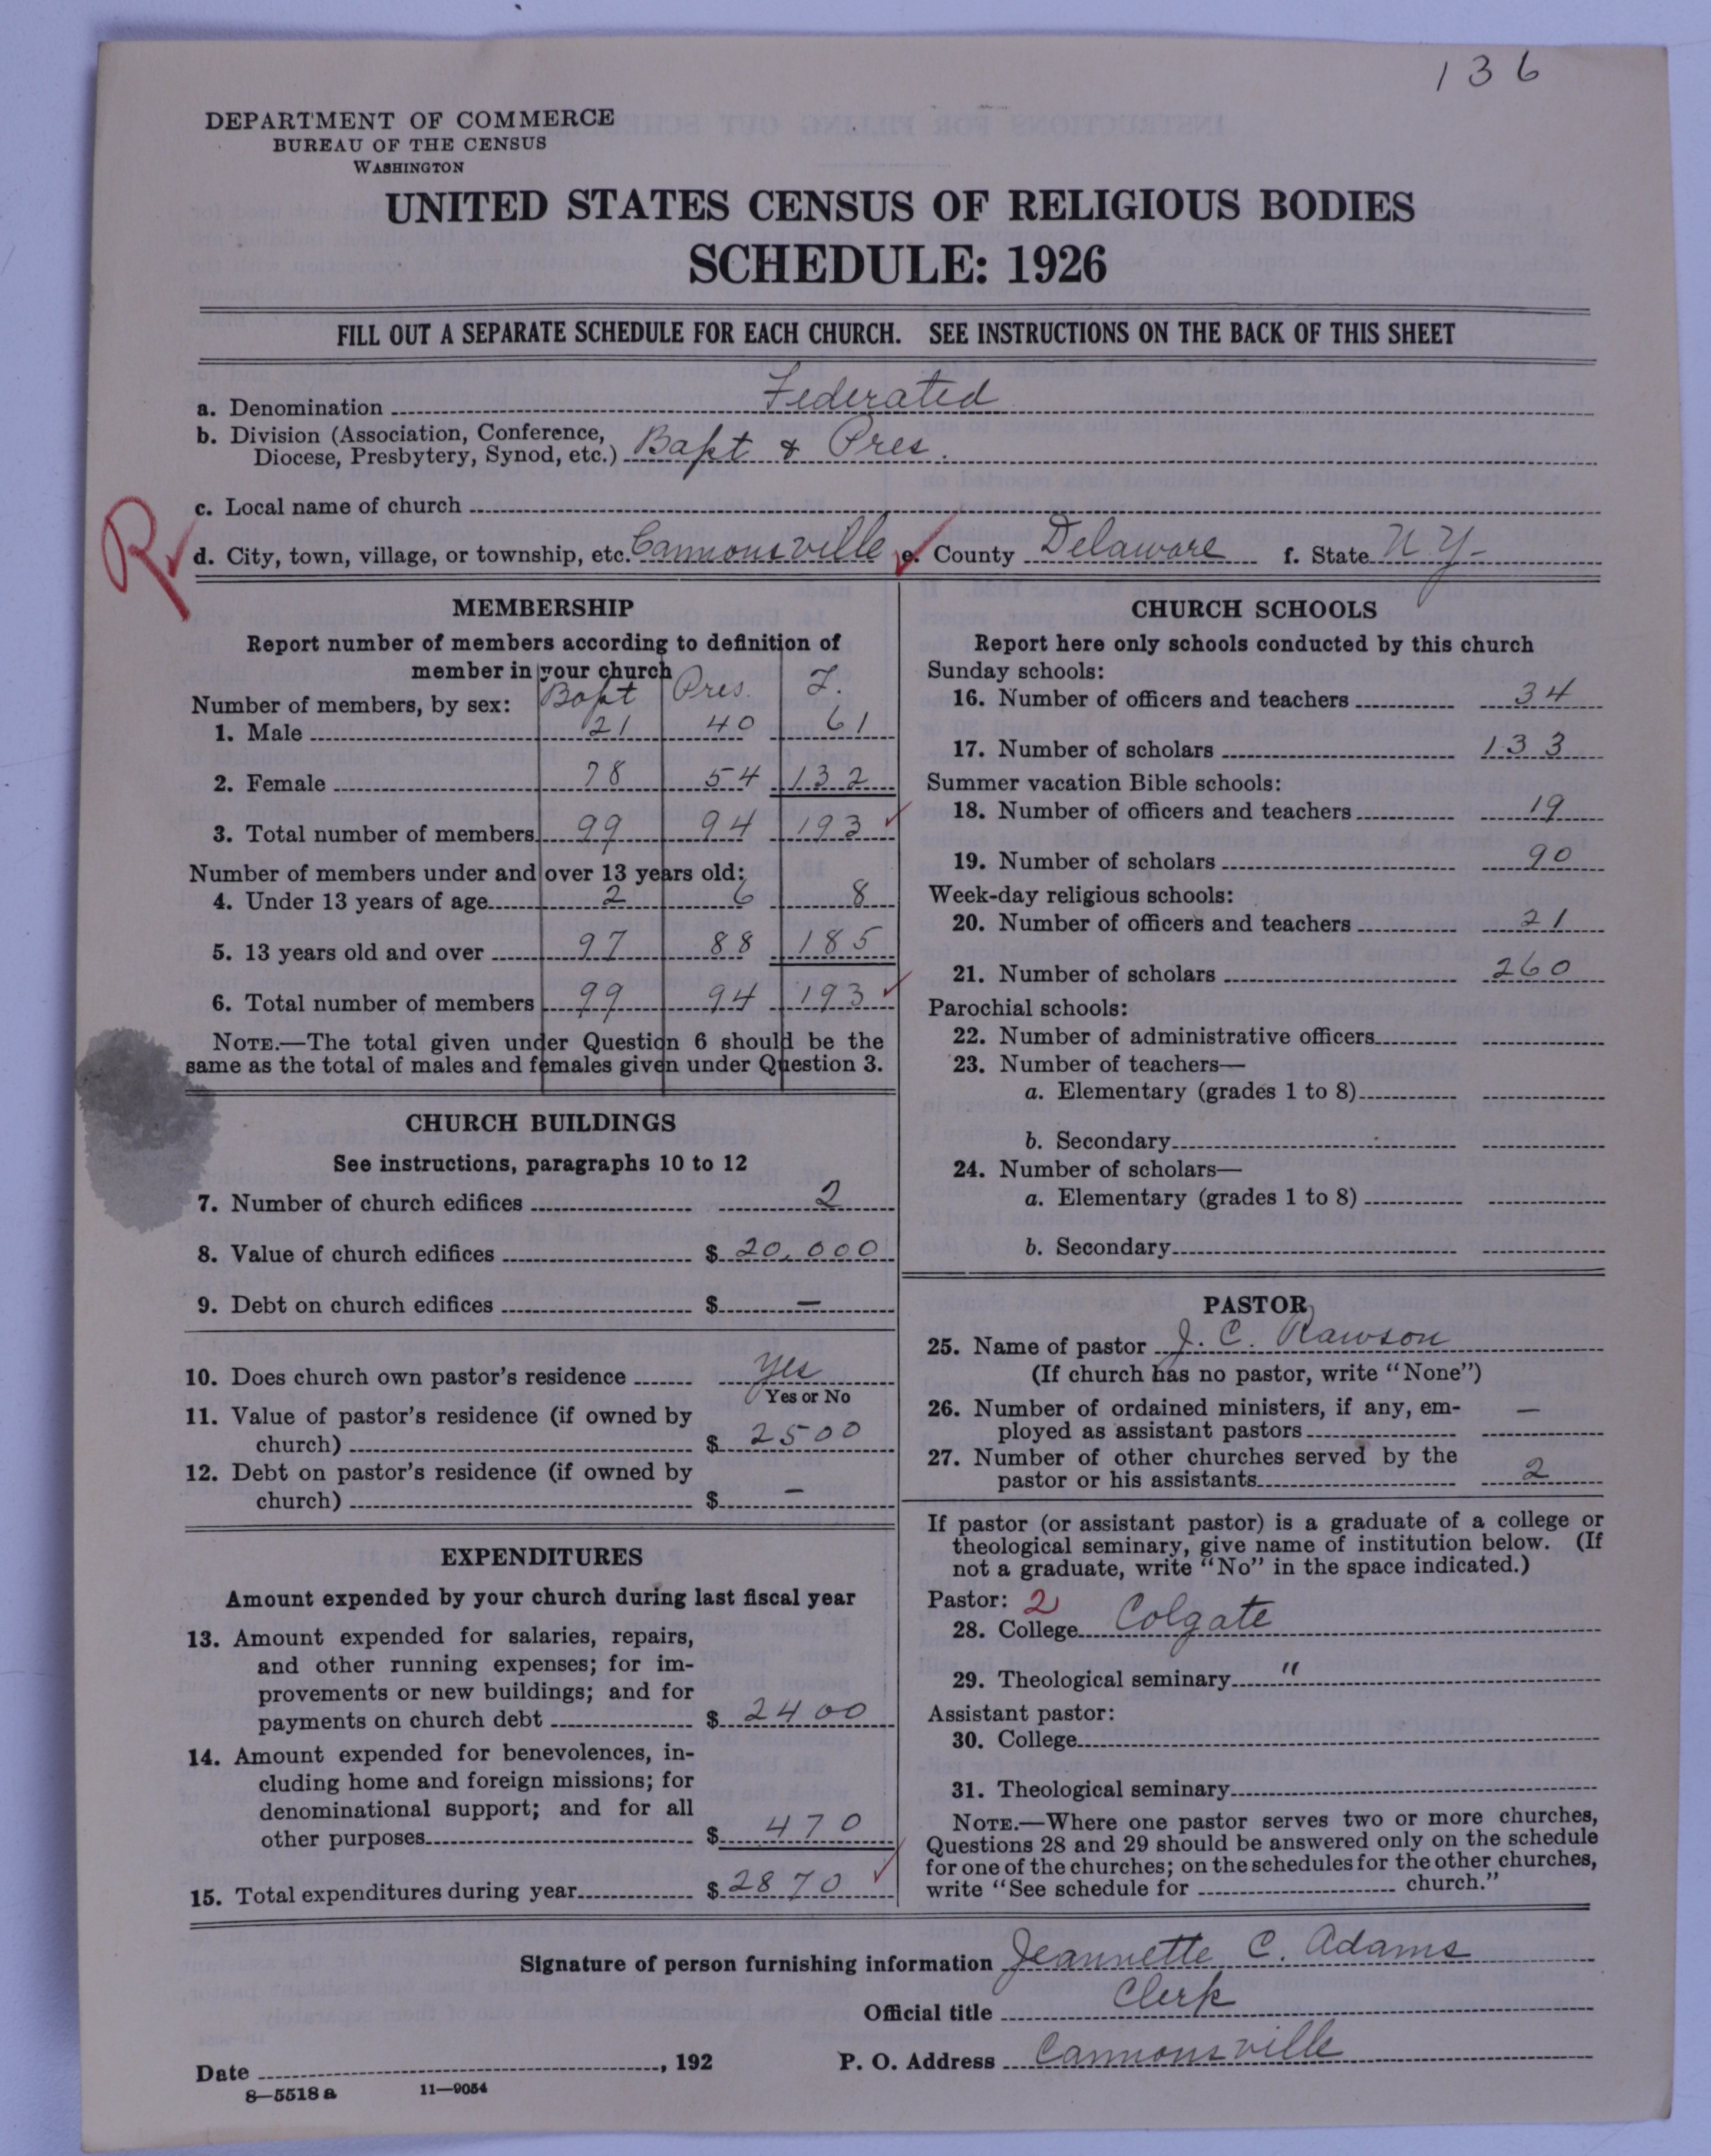 136
DEPARTMENT OF COMMERCE
BUREAU OF THE CENSUS
WASHINGTON
UNITED STATES CENSUS OF RELIGIOUS BODIES
SCHEDULE: 1926
FILL OUT A SEPARATE SCHEDULE FOR EACH CHURCH. SEE INSTRUCTIONS ON THE BACK OF THIS SHEET
a. Denomination Federated
b. Division (Association, Conference,
Diocese, Presbytery, Synod, etc.) Bapt & Pres.
c. Local name of church
R
d. City, town, village, or township, etc. Cannonsville e. County Delaware f. State N.Y-
MEMBERSHIP
Report number of members according to definition of
member in your church
Number of members, by sex: Bapt Pres. F.
1. Male 21 40 61
2. Female 78 54 132
3. Total number of members 99 94 193 ✓
Number of members under and over 13 years old:
4. Under 13 years of age 2 6 8
5. 13 years old and over 97 88 185
6. Total number of members 99 94 193 ✓
NOTE.—The total given under Question 6 should be the
same as the total of males and females given under Question 3.
CHURCH BUILDINGS
See instructions, paragraphs 10 to 12
7. Number of church edifices 2
8. Value of church edifices $ 20,000
9. Debt on church edifices $ —
10. Does church own pastor's residence yes
Yes or No
11. Value of pastor's residence (if owned by
church) $ 2500
12. Debt on pastor's residence (if owned by
church) $ —
EXPENDITURES
Amount expended by your church during last fiscal year
13. Amount expended for salaries, repairs,
and other running expenses; for im-
provements or new buildings; and for
payments on church debt $ 2400
14. Amount expended for benevolences, in-
cluding home and foreign missions; for
denominational support; and for all
other purposes $ 470
15. Total expenditures during year $ 2870 ✓
CHURCH SCHOOLS
Report here only schools conducted by this church
Sunday schools:
16. Number of officers and teachers 34
17. Number of scholars 133
Summer vacation Bible schools:
18. Number of officers and teachers 19
19. Number of scholars 90
Week-day religious schools:
20. Number of officers and teachers 21
21. Number of scholars 260
Parochial schools:
22. Number of administrative officers
23. Number of teachers—
a. Elementary (grades 1 to 8)
b. Secondary
24. Number of scholars—
a. Elementary (grades 1 to 8)
b. Secondary
PASTOR
25. Name of pastor J. C. Rawson
(If church has no pastor, write "None")
26. Number of ordained ministers, if any, em-
ployed as assistant pastors —
27. Number of other churches served by the
pastor or his assistants 2
If pastor (or assistant pastor) is a graduate of a college or
theological seminary, give name of institution below. (If
not a graduate, write "No" in the space indicated.)
Pastor: 2
28. College Colgate
29. Theological seminary "
Assistant pastor:
30. College
31. Theological seminary
NOTE.—Where one pastor serves two or more churches,
Questions 28 and 29 should be answered only on the schedule
for one of the churches; on the schedules for the other churches,
write "See schedule for church."
Signature of person furnishing information Jeannette C. Adams
Official title Clerk
Date , 192 P. O. Address Cannonsville
8—5518 a 11—9054